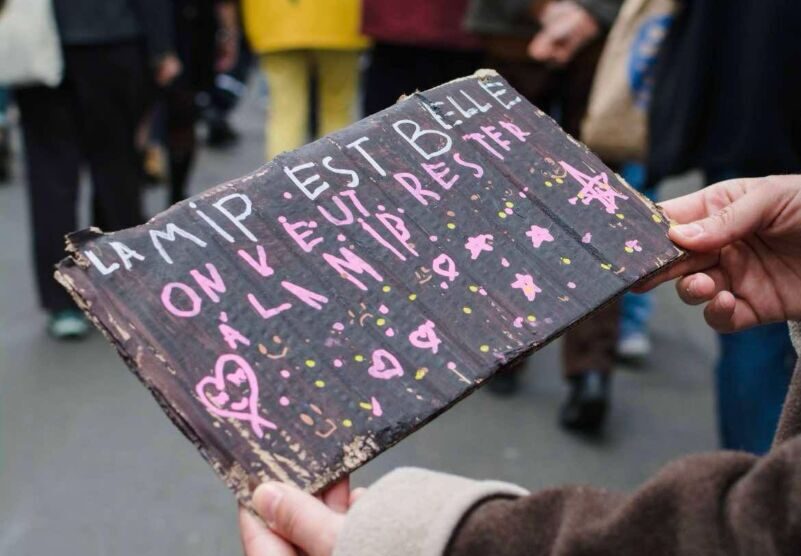 LA MIP EST BELLE
ON VEUT RESTER
À LA MIP